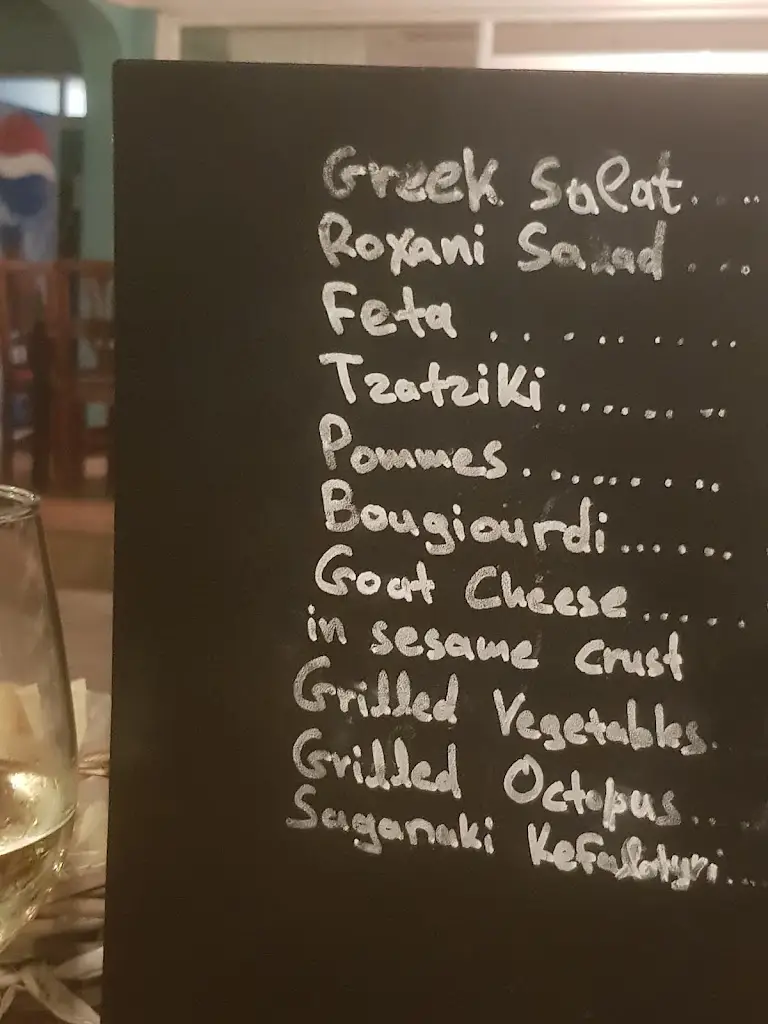 Greek Salat. . ..
Roxani Salad ....
Feta .. . .. . ..
Tzatziki ....... ..
Pommes. ........ ..
Bougiourdi.......
Goat Cheese ......
in sesame crust
Grilled Vegetables..
Grilled Octopus...
Saganaki Kefalotyri...